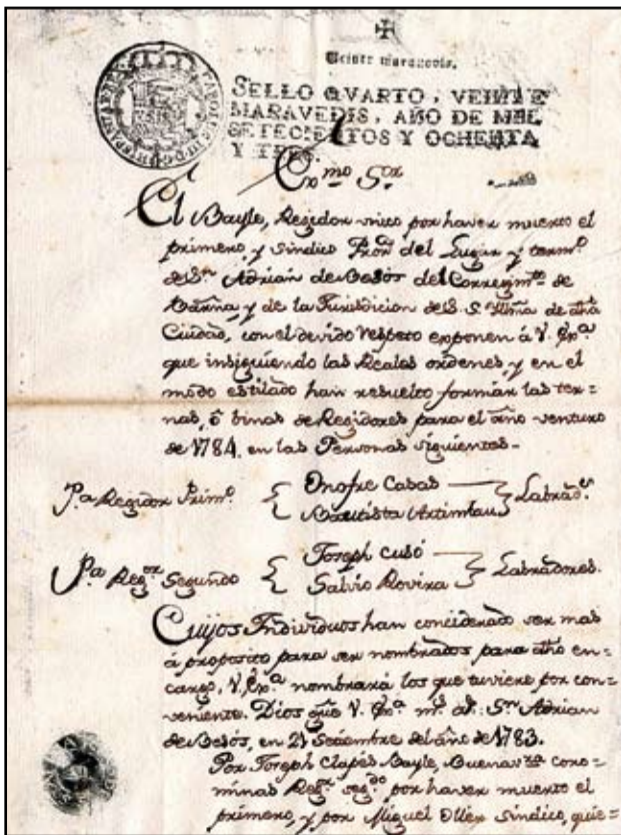 Veinte maravedis.
SELLO QVARTO, VEINTE
MARAVEDIS, AÑO DE MIL
SETECIENTOS Y OCHENTA
Y TRES.
Exmo Sor
El Bayle, Regidor unico por haver muerto el
primero, y Sindico Pror del Lugar y termo
de Sn Adrian de Besòs del Corregimto de
Barna y de la Jurisdicion de S. S. Illma de dha
Ciudad, con el devido respeto exponen à V. Exa
que insiguiendo las Reales ordenes, y en el
modo estilado han resuelto formar las ter=
nas, ò binas de Regidores para el año venturo
de 1784. en las Personas siguientes-
Pa Regidor Primo { Onofre Casas } Labrads
Bautista Artimbau
Pa Regor Segundo { Joseph Cusó } Labradores.
Salvio Rovira
Cuijos Individuos han conciderado ser mas
à proposito para ser nombrados para dho en=
cargo, V. Exa nombrará los que tuviere por con=
veniente. Dios gue V. Exa ms as: Sn Adrian
de Besòs, en 21 Setiembre del año de 1783.
Por Joseph Clapés Bayle, Buenavra Coro=
minas Regr segdo por haver muerto el
primero, y por Miguel Oller Sindico, quie=